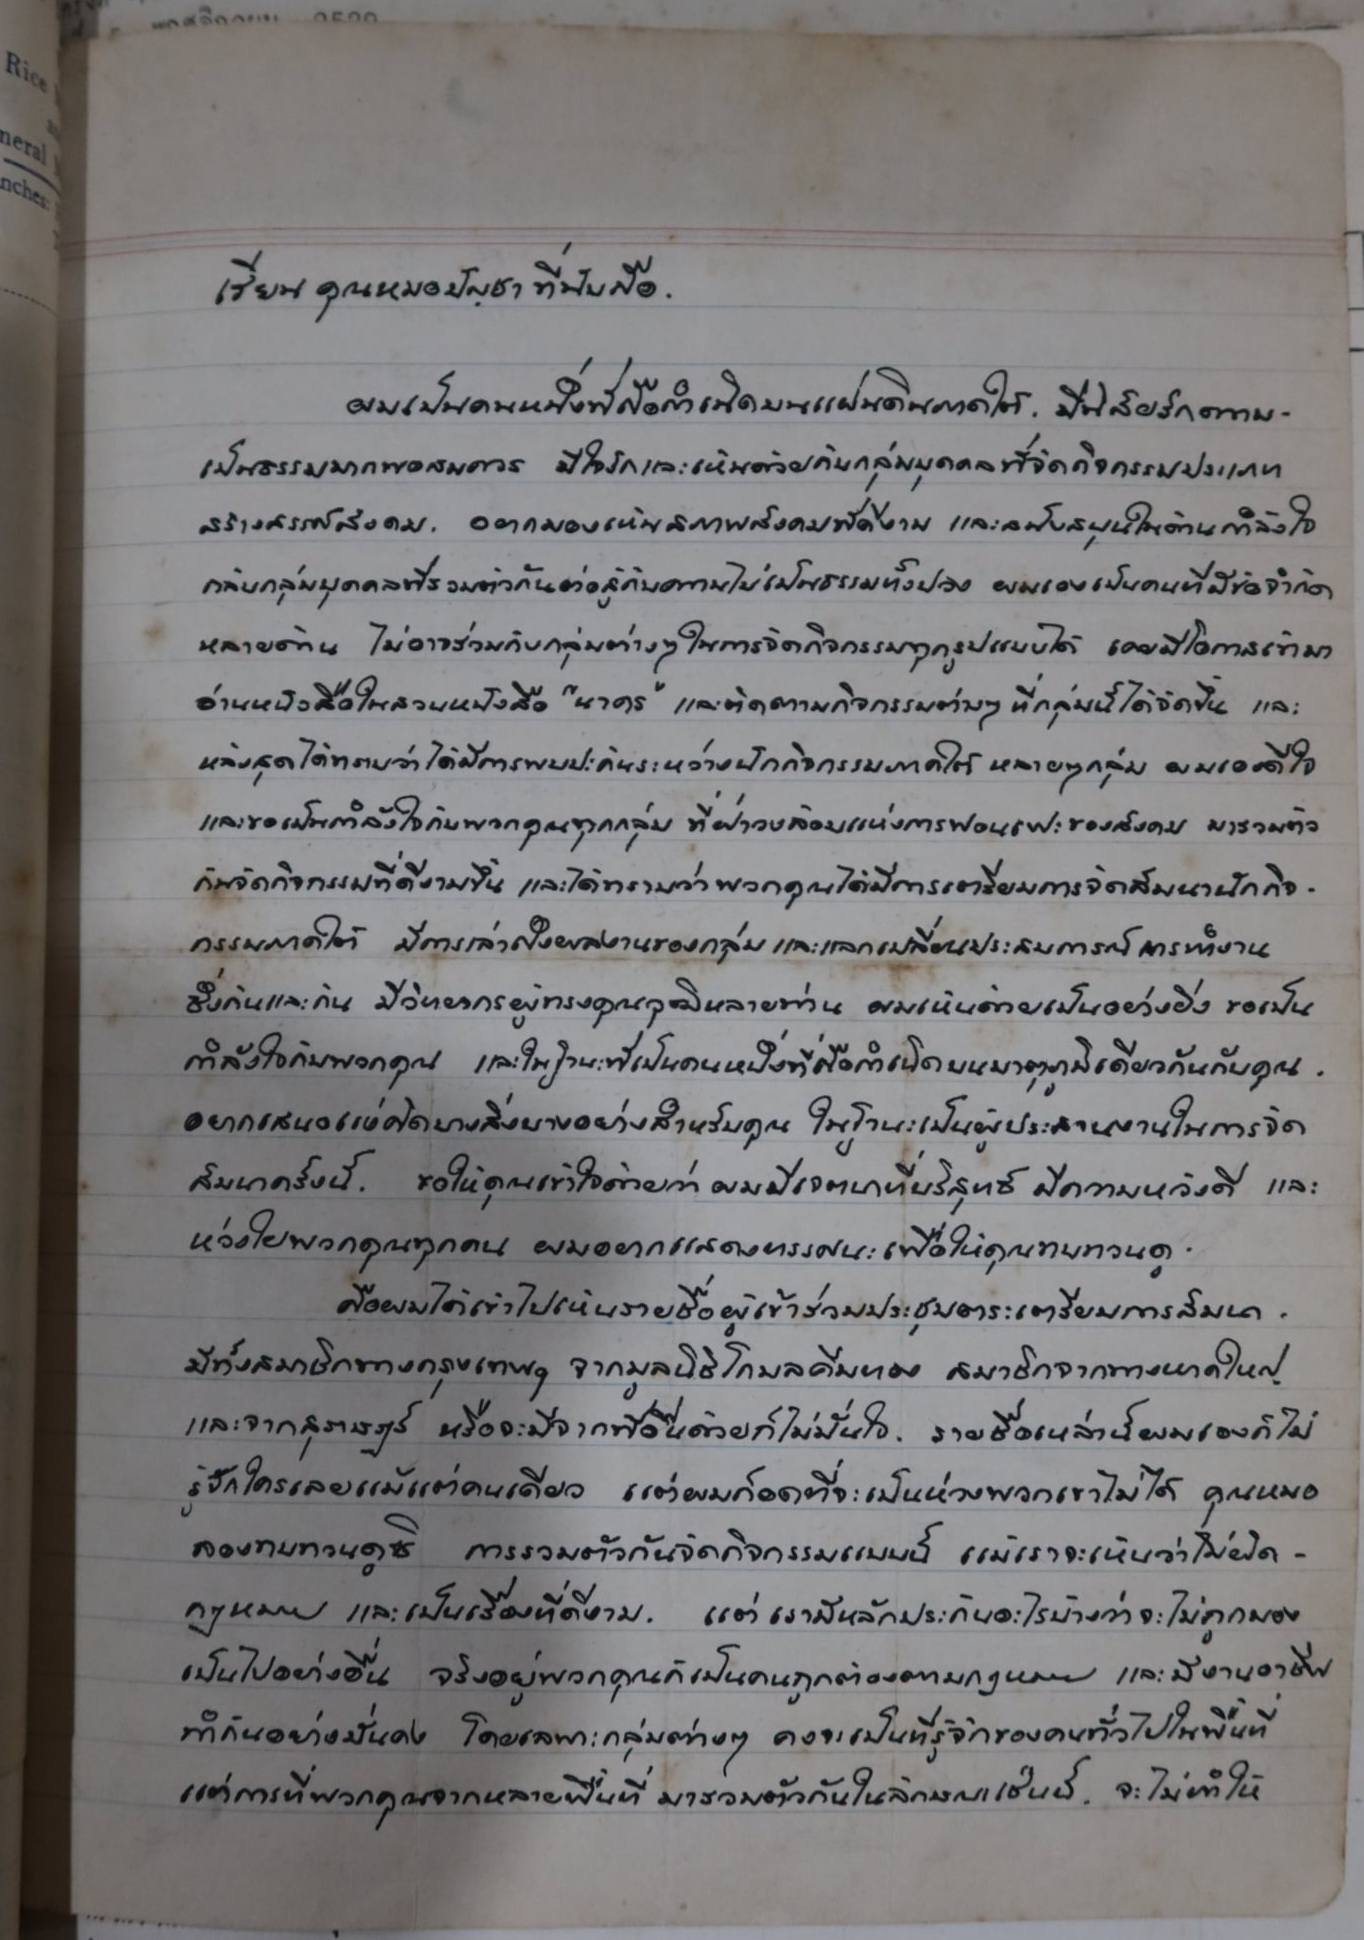 พฤศจิกายน 2529
Rice
neral
nches:
เรียน คุณหมอบัญชา ที่นับถือ.
ผมเป็นคนหนึ่งที่ถือกำเนิดบนแผ่นดินภาคใต้. มีนิสัยรักความ-
เป็นธรรมมากพอสมควร มีใจรักและเห็นด้วยกับกลุ่มบุคคลที่จัดกิจกรรมประเภท
สร้างสรรค์สังคม. อยากมองเห็นสภาพสังคมที่ดีงาม และสนับสนุนในด้านกำลังใจ
กลับกลุ่มบุคคลที่รวมตัวกันต่อสู้กับความไม่เป็นธรรมทั้งปวง ผมเองเป็นคนที่มีข้อจำกัด
หลายด้าน ไม่อาจร่วมกับกลุ่มต่างๆในการจัดกิจกรรมทุกรูปแบบได้ เคยมีโอกาสเข้ามา
อ่านหนังสือในสวนหนังสือ "นาคร" และติดตามกิจกรรมต่างๆ ที่กลุ่มนี้ได้จัดขึ้น และ
หลังสุดได้ทราบว่าได้มีการพบปะกันระหว่างนักกิจกรรมภาคใต้ หลายๆกลุ่ม ผมเองดีใจ
และขอเป็นกำลังใจกับพวกคุณทุกกลุ่ม ที่ฝ่าวงล้อมแห่งการฟอนเฟะของสังคม มารวมตัว
กันจัดกิจกรรมที่ดีงามขึ้น และได้ทราบว่าพวกคุณได้มีการเตรียมการจัดสัมนานักกิจ-
กรรมภาคใต้ มีการเล่าถึงผลงานของกลุ่ม และแลกเปลี่ยนประสบการณ์ การทำงาน
ซึ่งกันและกัน มีวิทยากรผู้ทรงคุณวุฒิหลายท่าน ผมเห็นด้วยเป็นอย่างยิ่ง ขอเป็น
กำลังใจกับพวกคุณ และในฐานะที่เป็นคนหนึ่งที่ถือกำเนิดบนมาตุภูมิเดียวกันกับคุณ.
อยากเสนอแง่คิดบางสิ่งบางอย่างสำหรับคุณ ในฐานะเป็นผู้ประสานงานในการจัด
สัมนาครั้งนี้. ขอให้คุณเข้าใจด้วยว่า ผมมีเจตนาที่บริสุทธิ์ มีความหวังดี และ
ห่วงใยพวกคุณทุกคน ผมอยากแสดงทรรศนะเพื่อให้คุณทบทวนดู.
คือผมได้เข้าไปเห็นรายชื่อผู้เข้าร่วมประชุมตระเตรียมการสัมนา.
มีทั้งสมาชิกทางกรุงเทพฯ จากมูลนิธิโกมลคีมทอง สมาชิกจากทางหาดใหญ่
และจากสุราษฎร์ หรือจะมีจากที่อื่นด้วยก็ไม่มั่นใจ. รายชื่อเหล่านี้ผมเองก็ไม่
รู้จักใครเลยแม้แต่คนเดียว แต่ผมก็อดที่จะเป็นห่วงพวกเขาไม่ได้ คุณหมอ
ลองทบทวนดูซิ การรวมตัวกันจัดกิจกรรมแบบนี้ แม้เราจะเห็นว่าไม่ผิด-
กฎหมาย และเป็นเรื่องที่ดีงาม. แต่ เรามีหลักประกันอะไรบ้างว่าจะไม่ถูกมอง
เป็นไปอย่างอื่น จริงอยู่พวกคุณก็เป็นคนถูกต้องตามกฎหมาย และมีงานอาชีพ
ทำกันอย่างมั่นคง โดยเฉพาะกลุ่มต่างๆ คงจะเป็นที่รู้จักของคนทั่วไปในพื้นที่
แต่การที่พวกคุณจากหลายพื้นที่ มารวมตัวกันในลักษณะเช่นนี้. จะไม่ทำให้